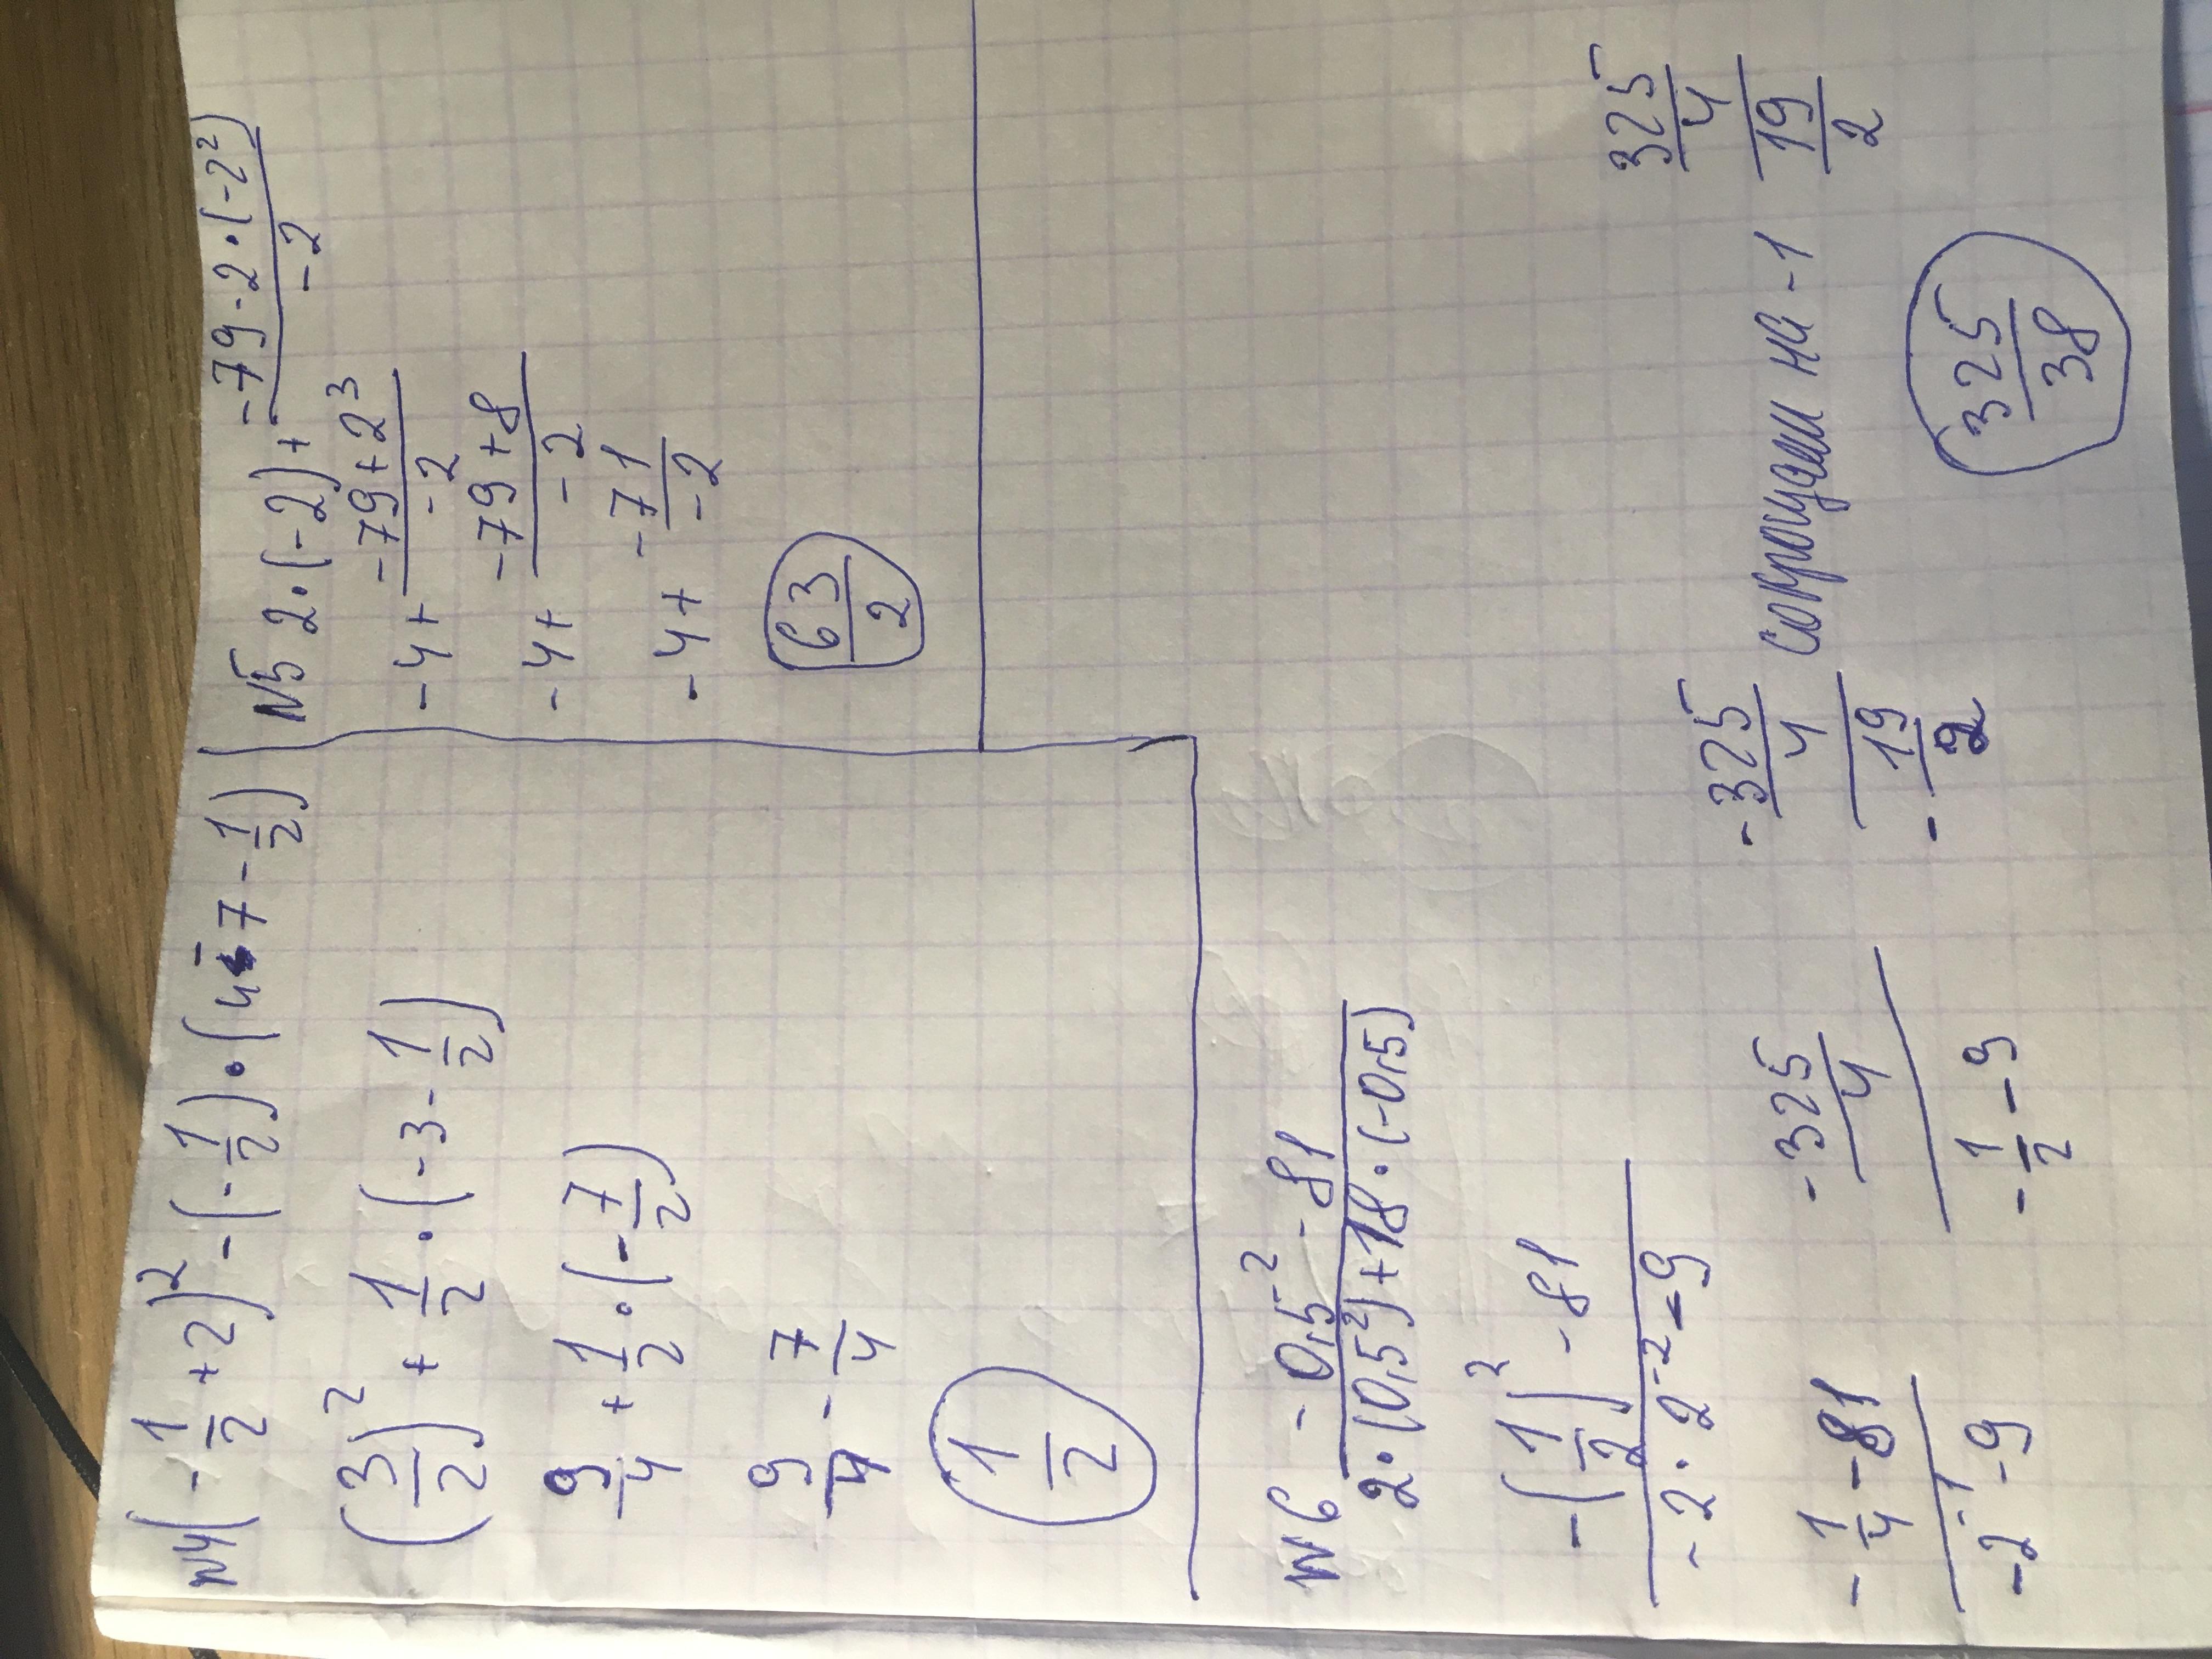 N4 (-1/2+2)² - (-1/2)·(4-7-1/2)
(3/2)² + 1/2·(-3-1/2)
9/4 + 1/2·(-7/2)
9/4 - 7/4
1/2
N5 2·(-2)+ (-79-2·(-2²))/-2
-4+ (-79+2³)/-2
-4+ (-79+8)/-2
-4+ -71/-2
63/2
N6 (-0,5² -81)/(2·(0,5²)+18·(-0,5))
(-(1/2)² -81)/(-2·2⁻²-9)
(-1/4-81)/(-2⁻¹-9)
(-325/4)/(-1/2-9)
(-325/4)/(-19/2) сокрощаем на -1 (325/4)/(19/2)
325/38